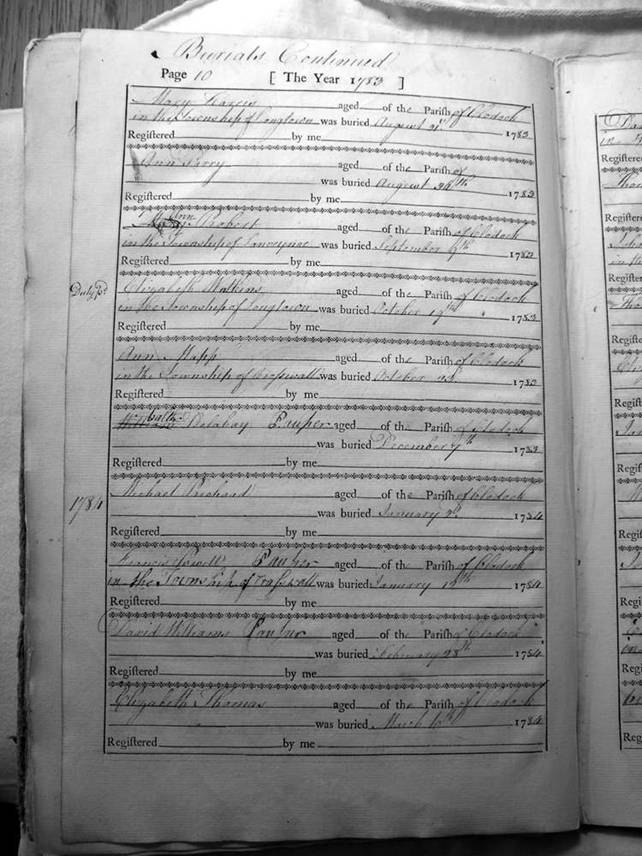 Burials Continued
Page 10 [ The Year 1783 ]
Mary Harris aged of the Parish of Clodock
in the Township of Longtown was buried August 1783
Registered by me
Ann Parry aged of the Parish of
was buried August 1783
Registered by me
Ann Probert aged of the Parish of Clodock
in the Township of was buried September 1783
Registered by me
Duty pd
Elizabeth Watkins aged of the Parish of Clodock
in the Township of Longtown was buried October 19th 1783
Registered by me
Ann aged of the Parish of Clodock
in the Township of Craswall was buried October 1783
Registered by me
Delahay Pauper aged of the Parish of Clodock
was buried December 7th 1783
Registered by me
1784
Michael Prichard aged of the Parish of Clodock
was buried January 1784
Registered by me
Francis Powell Pauper aged of the Parish of Clodock
in the Township of Crasswall was buried January 1784
Registered by me
David Williams Pauper aged of the Parish of Clodock
was buried February 28th 1784
Registered by me
Elizabeth Thomas aged of the Parish of Clodock
was buried March 1784
Registered by me